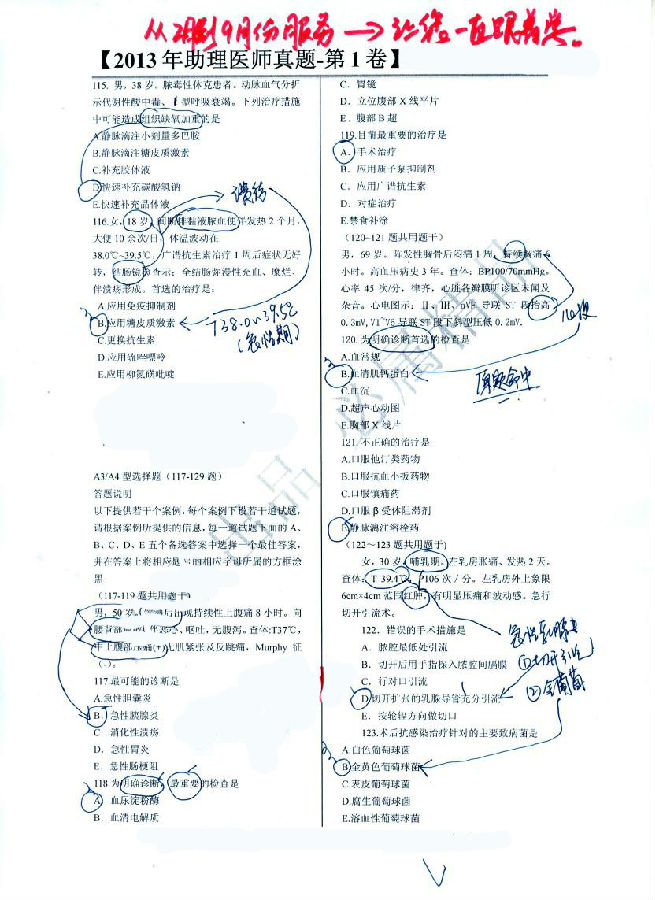 从2月到9月份服务→让您一直跟着走。
【2013年助理医师真题-第1卷】
115. 男，38岁。脓毒性休克患者，动脉血气分析
示代谢性酸中毒、I型呼吸衰竭。下列治疗措施
中可能造成组织缺氧加重的是
A.静脉滴注小剂量多巴胺
B.静脉滴注糖皮质激素
C.补充胶体液
D.快速补充碳酸氢钠
E.快速补充晶体液
116.女，18岁，间断排黏液脓血便伴发热2个月，
大便10余次/日，体温波动在
38.0℃~39.5℃，广谱抗生素治疗1周后症状无好
转，结肠镜检查示：全结肠弥漫性充血、糜烂，
伴溃疡形成。首选的治疗是：
A.应用免疫抑制剂
B.应用糖皮质激素
C.更换抗生素
D.应用硫唑嘌呤
E.应用柳氮磺吡啶
T38.0~39.5℃
A3/A4型选择题（117-129题）
答题说明
以下提供若干个案例，每个案例下设若干道试题，
请根据案例所提供的信息，每一道试题下面的A、
B、C、D、E五个备选答案中选择一个最佳答案，
并在答案上将相应题号的相应字母所属的方框涂
黑
(117-119题共用题干)
男，50岁。后出现持续性上腹痛8小时。向
腰背部，呕吐，无腹泻。查体:T37℃，
中上腹部无肌紧张及反跳痛，Murphy征
(-)。
117最可能的诊断是
A.急性胆囊炎
B 急性胰腺炎
C 消化性溃疡
D. 急性胃炎
E. 急性肠梗阻
118为明确诊断，最重要的检查是
A 血尿淀粉酶
B 血清电解质
C. 胃镜
D. 立位腹部X线平片
E. 腹部B超
119.目前最重要的治疗是
A. 手术治疗
B. 应用质子泵抑制剂
C. 应用广谱抗生素
D. 对症治疗
E.禁食补液
(120-121题共用题干)
男，59岁。阵发性胸骨后闷痛1周，持续胸痛
小时。高血压病史3年。查体：BP100/70mmHg。
心率45次/分，律齐，心脏各瓣膜听诊区未闻及
杂音。心电图示：II、III、aVF导联ST段抬高
0.3mV,V1~V6导联ST段下斜型压低0.2mV.
120. 为明确诊断首选的检查是
A.血常规
B.血清肌钙蛋白
C.血沉
D.超声心动图
E.胸部X线片
原题命中
121. 不正确的治疗是
A.口服他汀类药物
B.口服抗血小板药物
C.口服镇痛药
D.口服β受体阻滞剂
E.静脉滴注溶栓药
(122~123题共用题于)
女，30岁，哺乳期。左乳房胀痛、发热2天。
查体：T 39.4℃，P106次/分。左乳房外上象限
6cm×4cm范围红肿，有明显压痛和波动感。急行
切开引流术。
122. 错误的手术措施是
A. 脓腔最低处引流
B. 切开后用手指探入脓腔间隔膜
C. 行对口引流
D.切开扩张的乳腺导管充分引流
E. 按轮辐方向做切口
①切开引流
②金葡菌
123.术后抗感染治疗针对的主要致病菌是
A.白色葡萄球菌
B.金黄色葡萄球菌
C.表皮葡萄球菌
D.腐生葡萄球菌
E.溶血性葡萄球菌